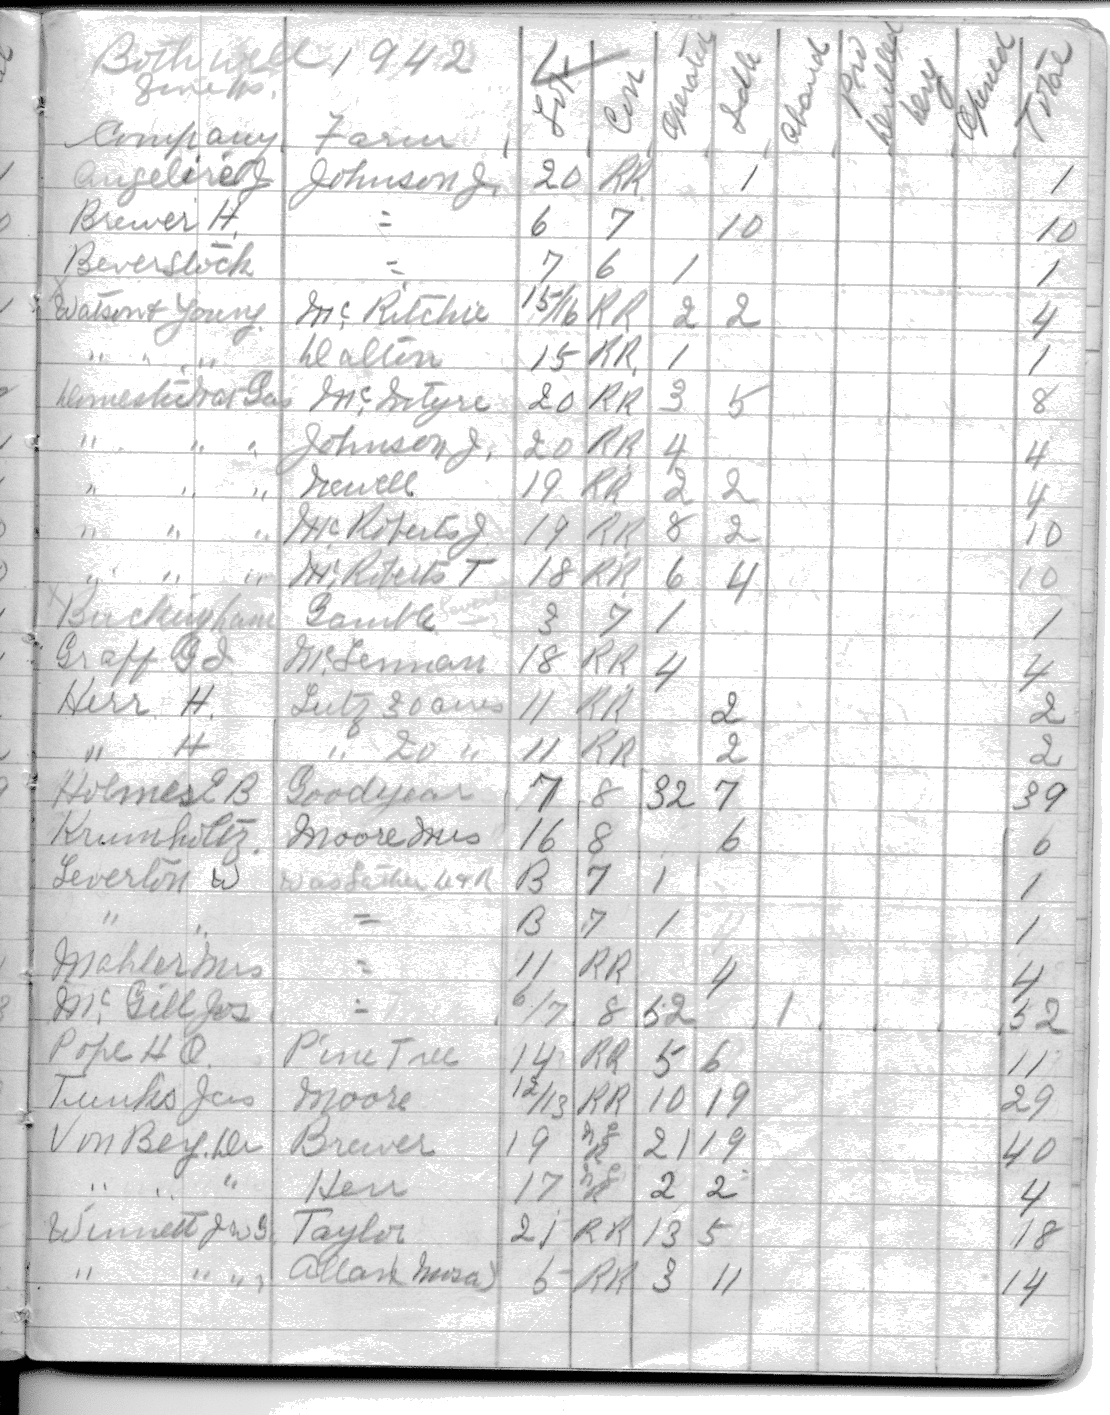 Bothwell 1942
Company Farm Lot Con Operated Idle Aband Total
Angeline J Johnson J. 20 RR 1 1
Brewer H. = 6 7 10 10
Beverstock = 7 6 1 1
Watson & Young Mc Ritchie 15/16 RR 2 2 4
" " " Dalton 15 RR 1 1
Domestic Nat Gas Mc Intyre 20 RR 3 5 8
" " " Johnson J. 20 RR 4 4
" " " Newell 19 RR 2 2 4
" " " Mc Roberts J 19 RR 8 2 10
" " " Mc Roberts T 18 RR 6 4 10
Buckingham Gamble 3 7 1 1
Graff G J McLennan 18 RR 4 4
Herr H. Lutz 30 acres 11 RR 2 2
" H " 20 " 11 RR 2 2
Holmes E B Goodyear 7 8 32 7 39
Krumholtz. Moore Mrs 16 8 6 6
Leverton W B 7 1 1
" " = B 7 1 1
Mahler Mrs = 11 RR 4 4
Mc Gill Jos = 6/7 8 52 1 52
Pope H O. Pine Tree 14 RR 5 6 11
Trunks Jas Moore 12/13 RR 10 19 29
Von Bey. Dr Brewer 19 21 19 40
" " " Herr 17 2 2 4
Winnett J W G Taylor 21 RR 13 5 18
" " " " Allan 5 RR 3 11 14